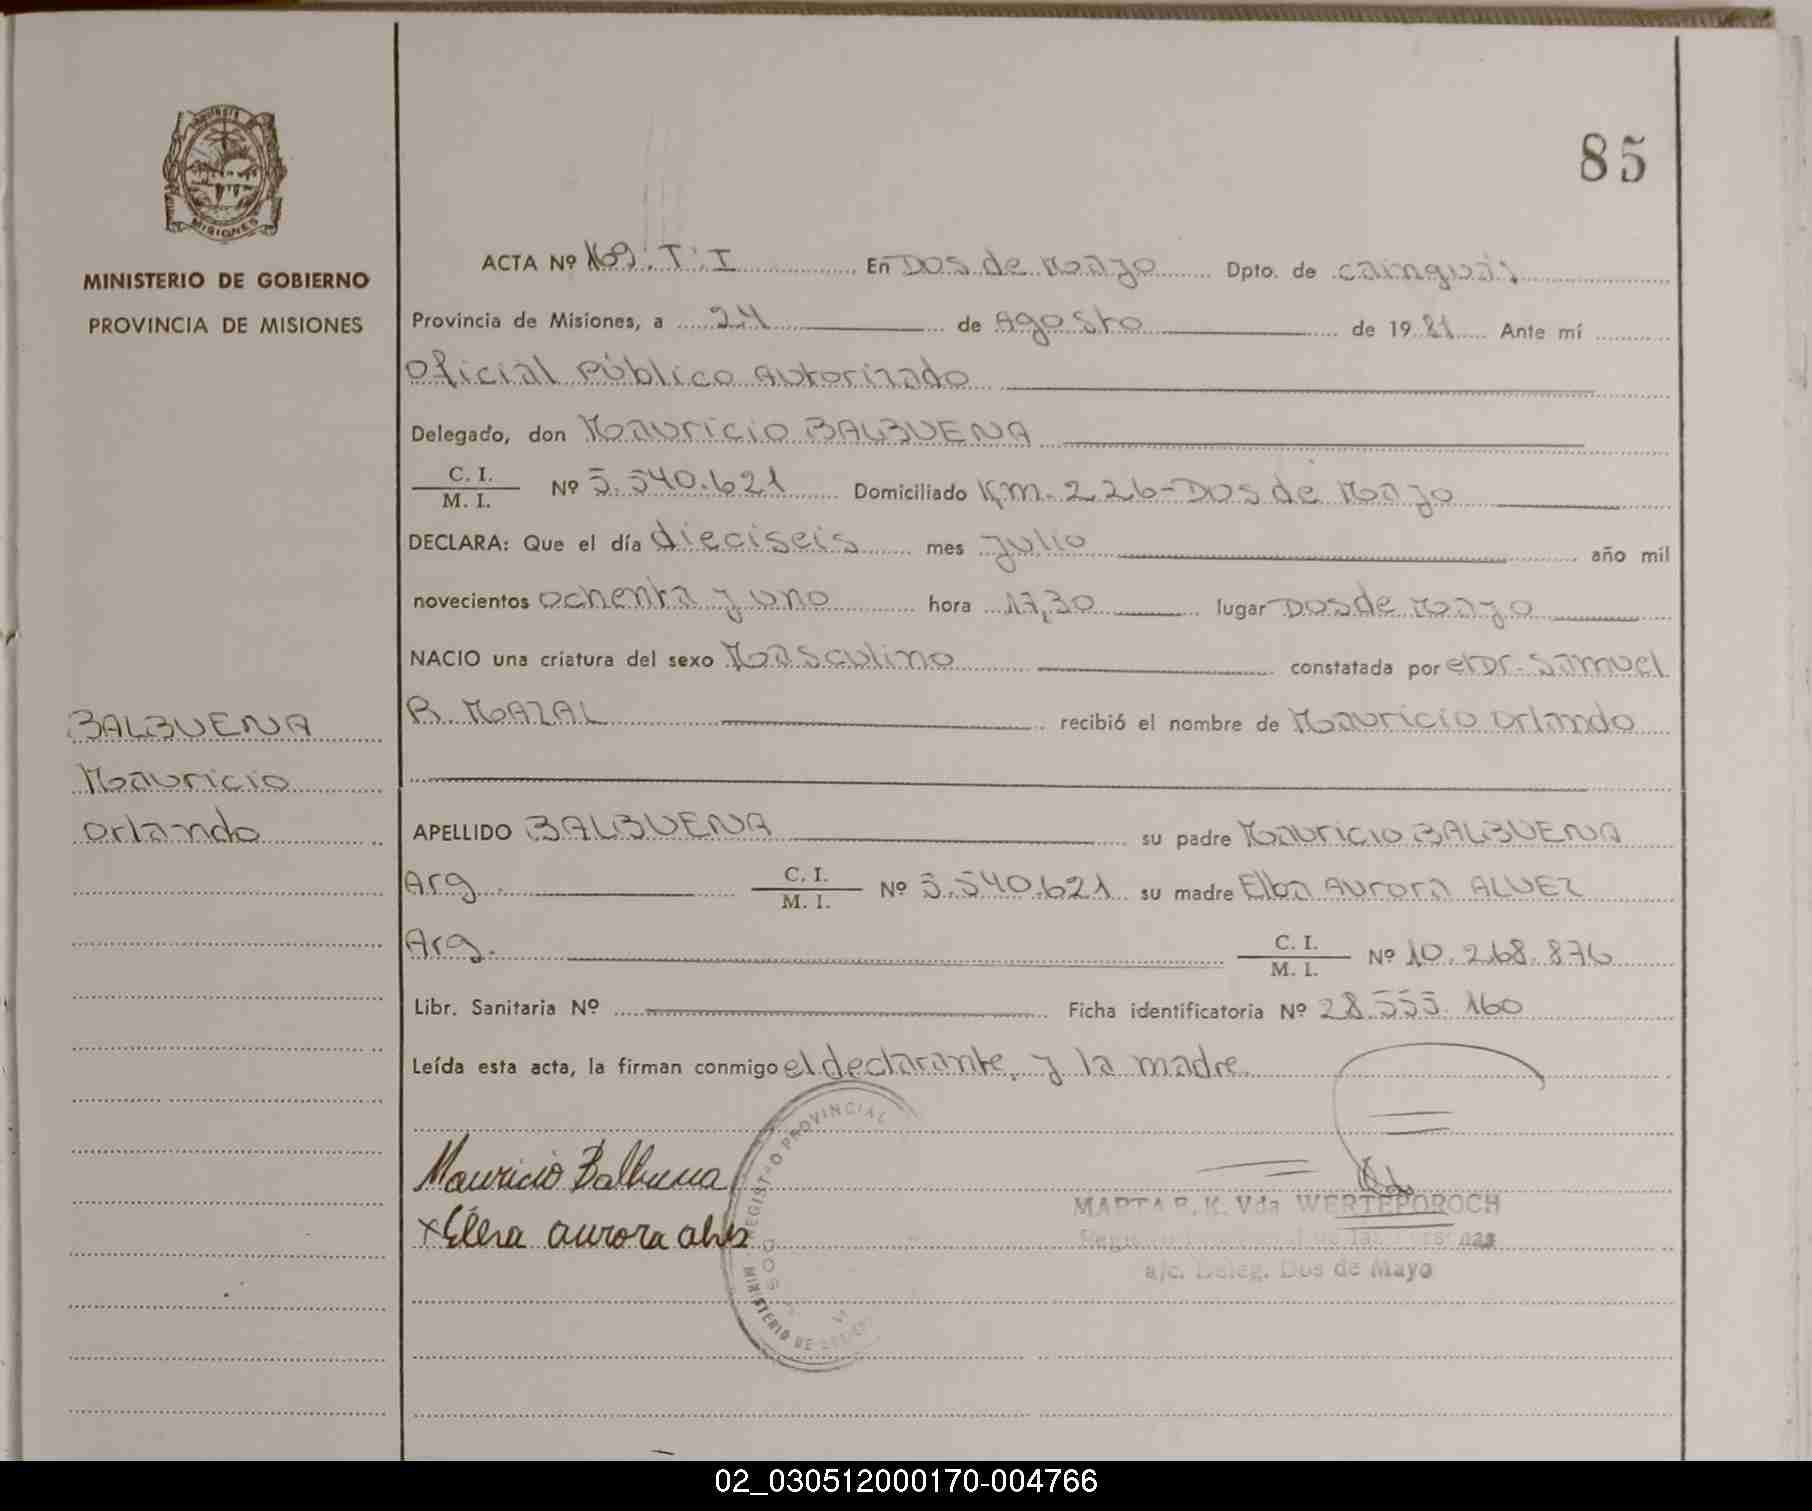 85
MINISTERIO DE GOBIERNO
PROVINCIA DE MISIONES
ACTA Nº 169. T. I En Dos de Mayo Dpto. de cainguás
Provincia de Misiones, a 24 de Agosto de 1981 Ante mí
Oficial Público Autorizado
Delegado, don Mauricio BALBUENA
C. I.
M. I. Nº 5.540.621 Domiciliado Km. 226-Dos de Mayo
DECLARA: Que el día dieciseis mes julio año mil
novecientos ochenta y uno hora 17,30 lugar Dos de Mayo
NACIO una criatura del sexo Masculino constatada por el Dr. Samuel
R. MAZAL recibió el nombre de Mauricio Orlando
BALBUENA
Mauricio
Orlando
APELLIDO BALBUENA su padre Mauricio BALBUENA
Arg. C. I.
M. I. Nº 5.540.621 su madre Elba Aurora ALVEZ
Arg. C. I.
M. I. Nº 10.268.876
Libr. Sanitaria Nº Ficha identificatoria Nº 28.555.160
Leída esta acta, la firman conmigo el declarante, y la madre.
Mauricio Balbuena
x Elba aurora alves
REGISTRO PROVINCIAL
MINISTERIO DE
DOS
MARTA R. K. Vda WERTEPOROCH
a/c. Deleg. Dos de Mayo
02_030512000170-004766